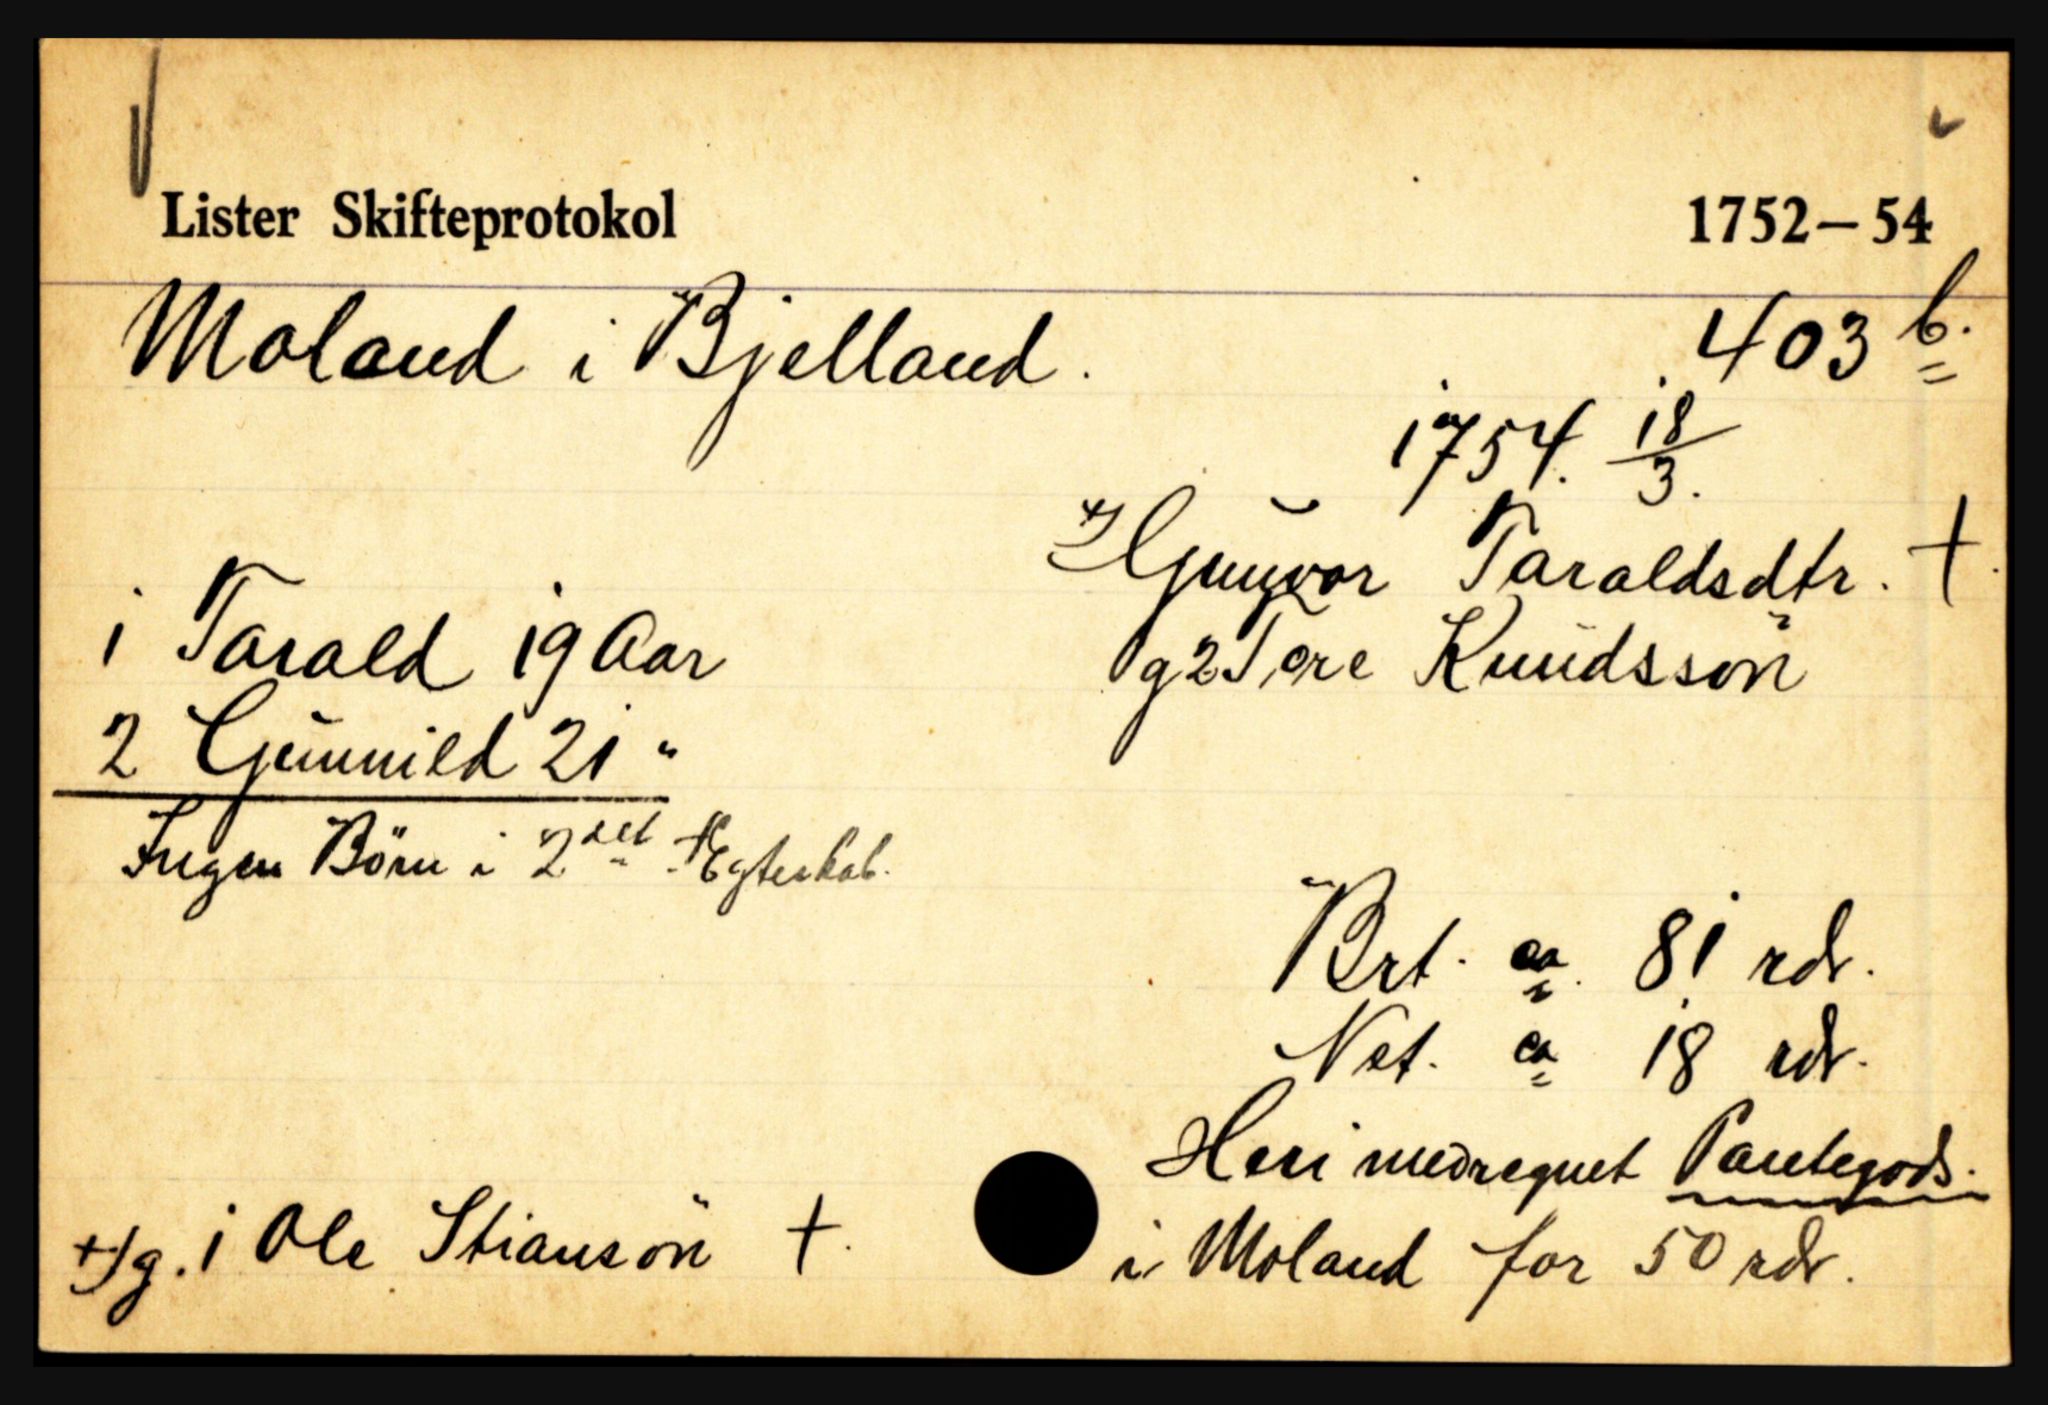 Lister Skifteprotokol 1752-54
Moland i Bjelland. 403 b.
1754. 18/3.
+) Gunvor Taraldsdtr. †
g2 Tore Knudssön
1 Tarald 19 Aar
2 Gunnild 21 "
Ingen Börn i 2det Egteskab.
Brt. ca. 81 rdr.
Net. ca 18 rdr.
Heri medregnet Pantegods.
i Moland for 50 rdr.
+) g. 1 Ole Stiansön †.